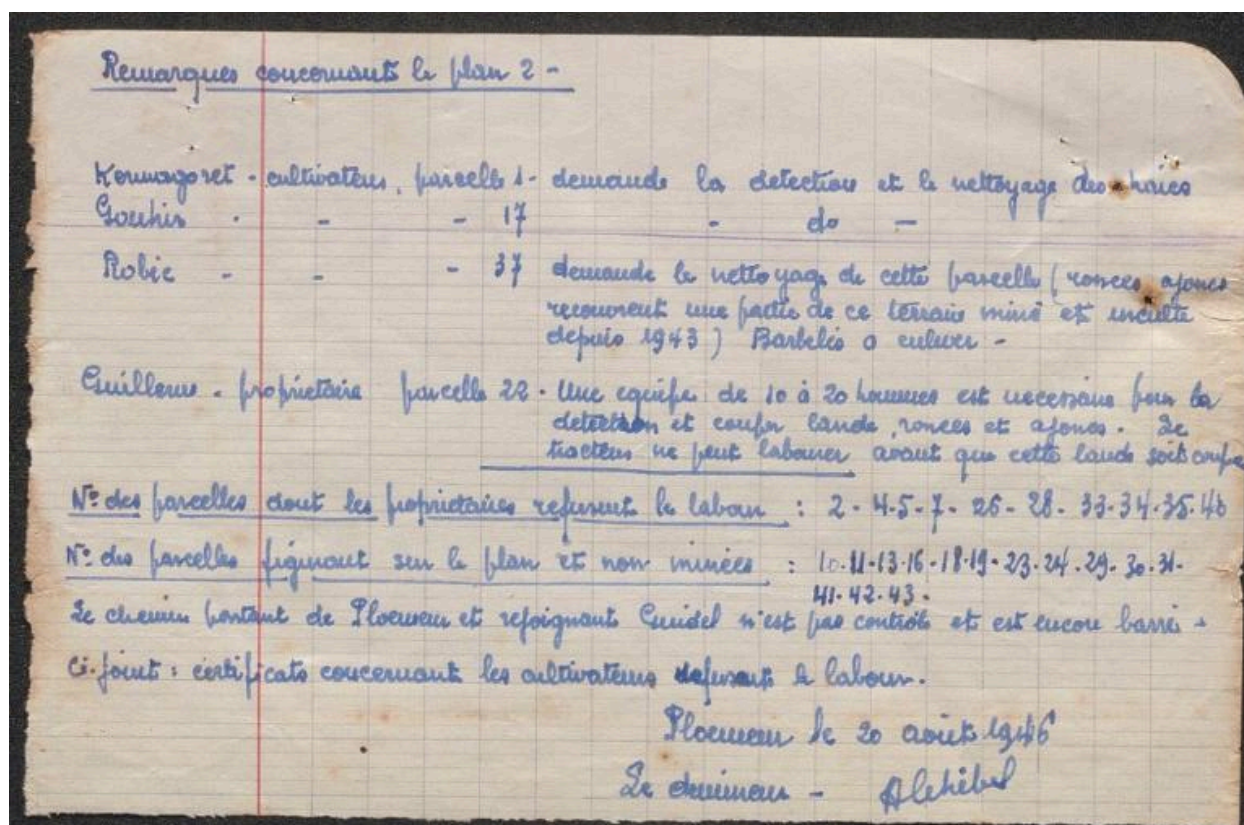 Remarques concernant le plan 2 -
Kermagoret - cultivateur, parcelle 1 - demande la detection et le nettoyage des haies
Gouhir - - - 17 - do -
Robic - - - 37 demande le nettoyage de cette parcelle (ronces ajoncs
recouvrent une partie de ce terrain miné et inculte
depuis 1943) Barbelés a enlever -
Guillerme - propriétaire parcelle 22 - Une equipe de 10 à 20 hommes est necessaire pour la
detection et couper lande, ronces et ajoncs - Le
tracteur ne peut labourer avant que cette lande soit coupée
N° des parcelles dont les proprietaires refusent le labour : 2 - 4 - 5 - 7 - 26 - 28 - 33 - 34 - 35 - 40
N° des parcelles figurant sur le plan et non minées : 10 - 11 - 13 - 16 - 18 - 19 - 23 - 24 - 29 - 30 - 31 -
41 - 42 - 43 -
Le chemin partant de Ploemeur et rejoignant Guidel n'est pas controlé et est encore barré -
Ci-joint : certificats concernant les cultivateurs refusant le labour.
Ploemeur le 20 août 1946
Le démineur -